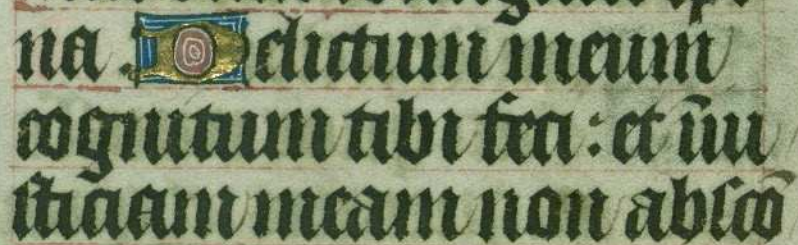 na. Delictum meum
cognitum tibi feci : et īiu
ſticiam meam non abſcō